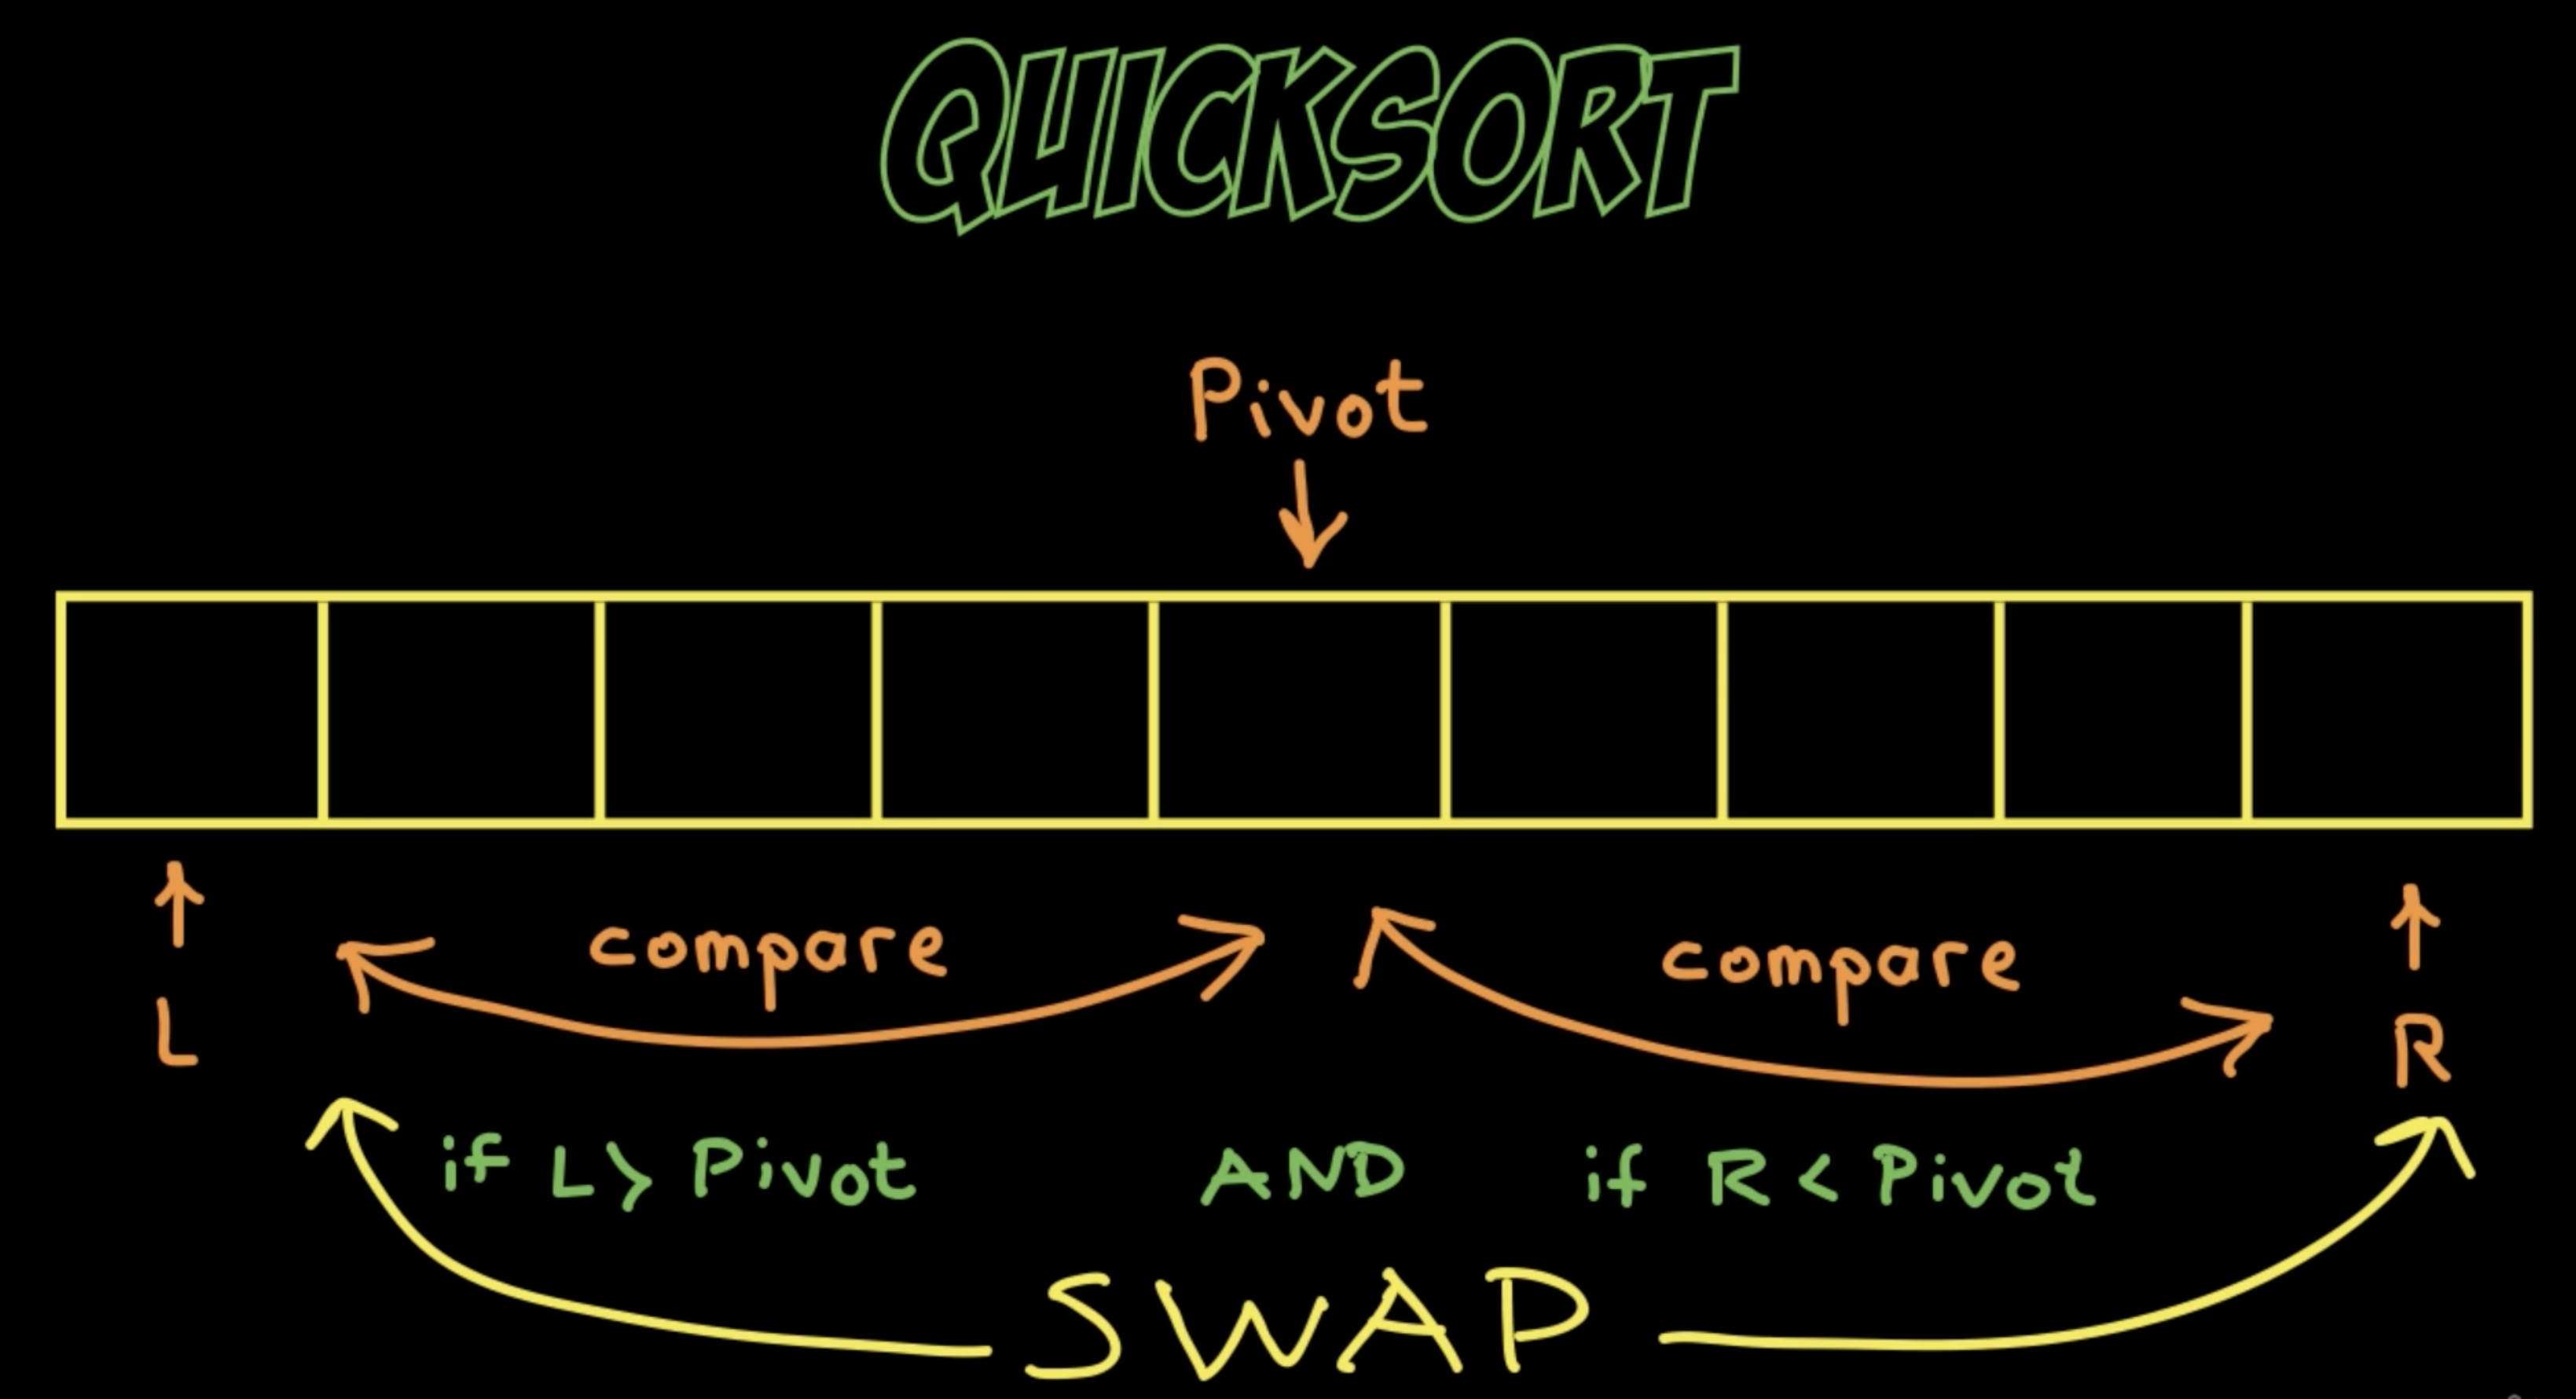 QUICKSORT
Pivot
compare compare
L R
if L > Pivot AND if R < Pivot
SWAP